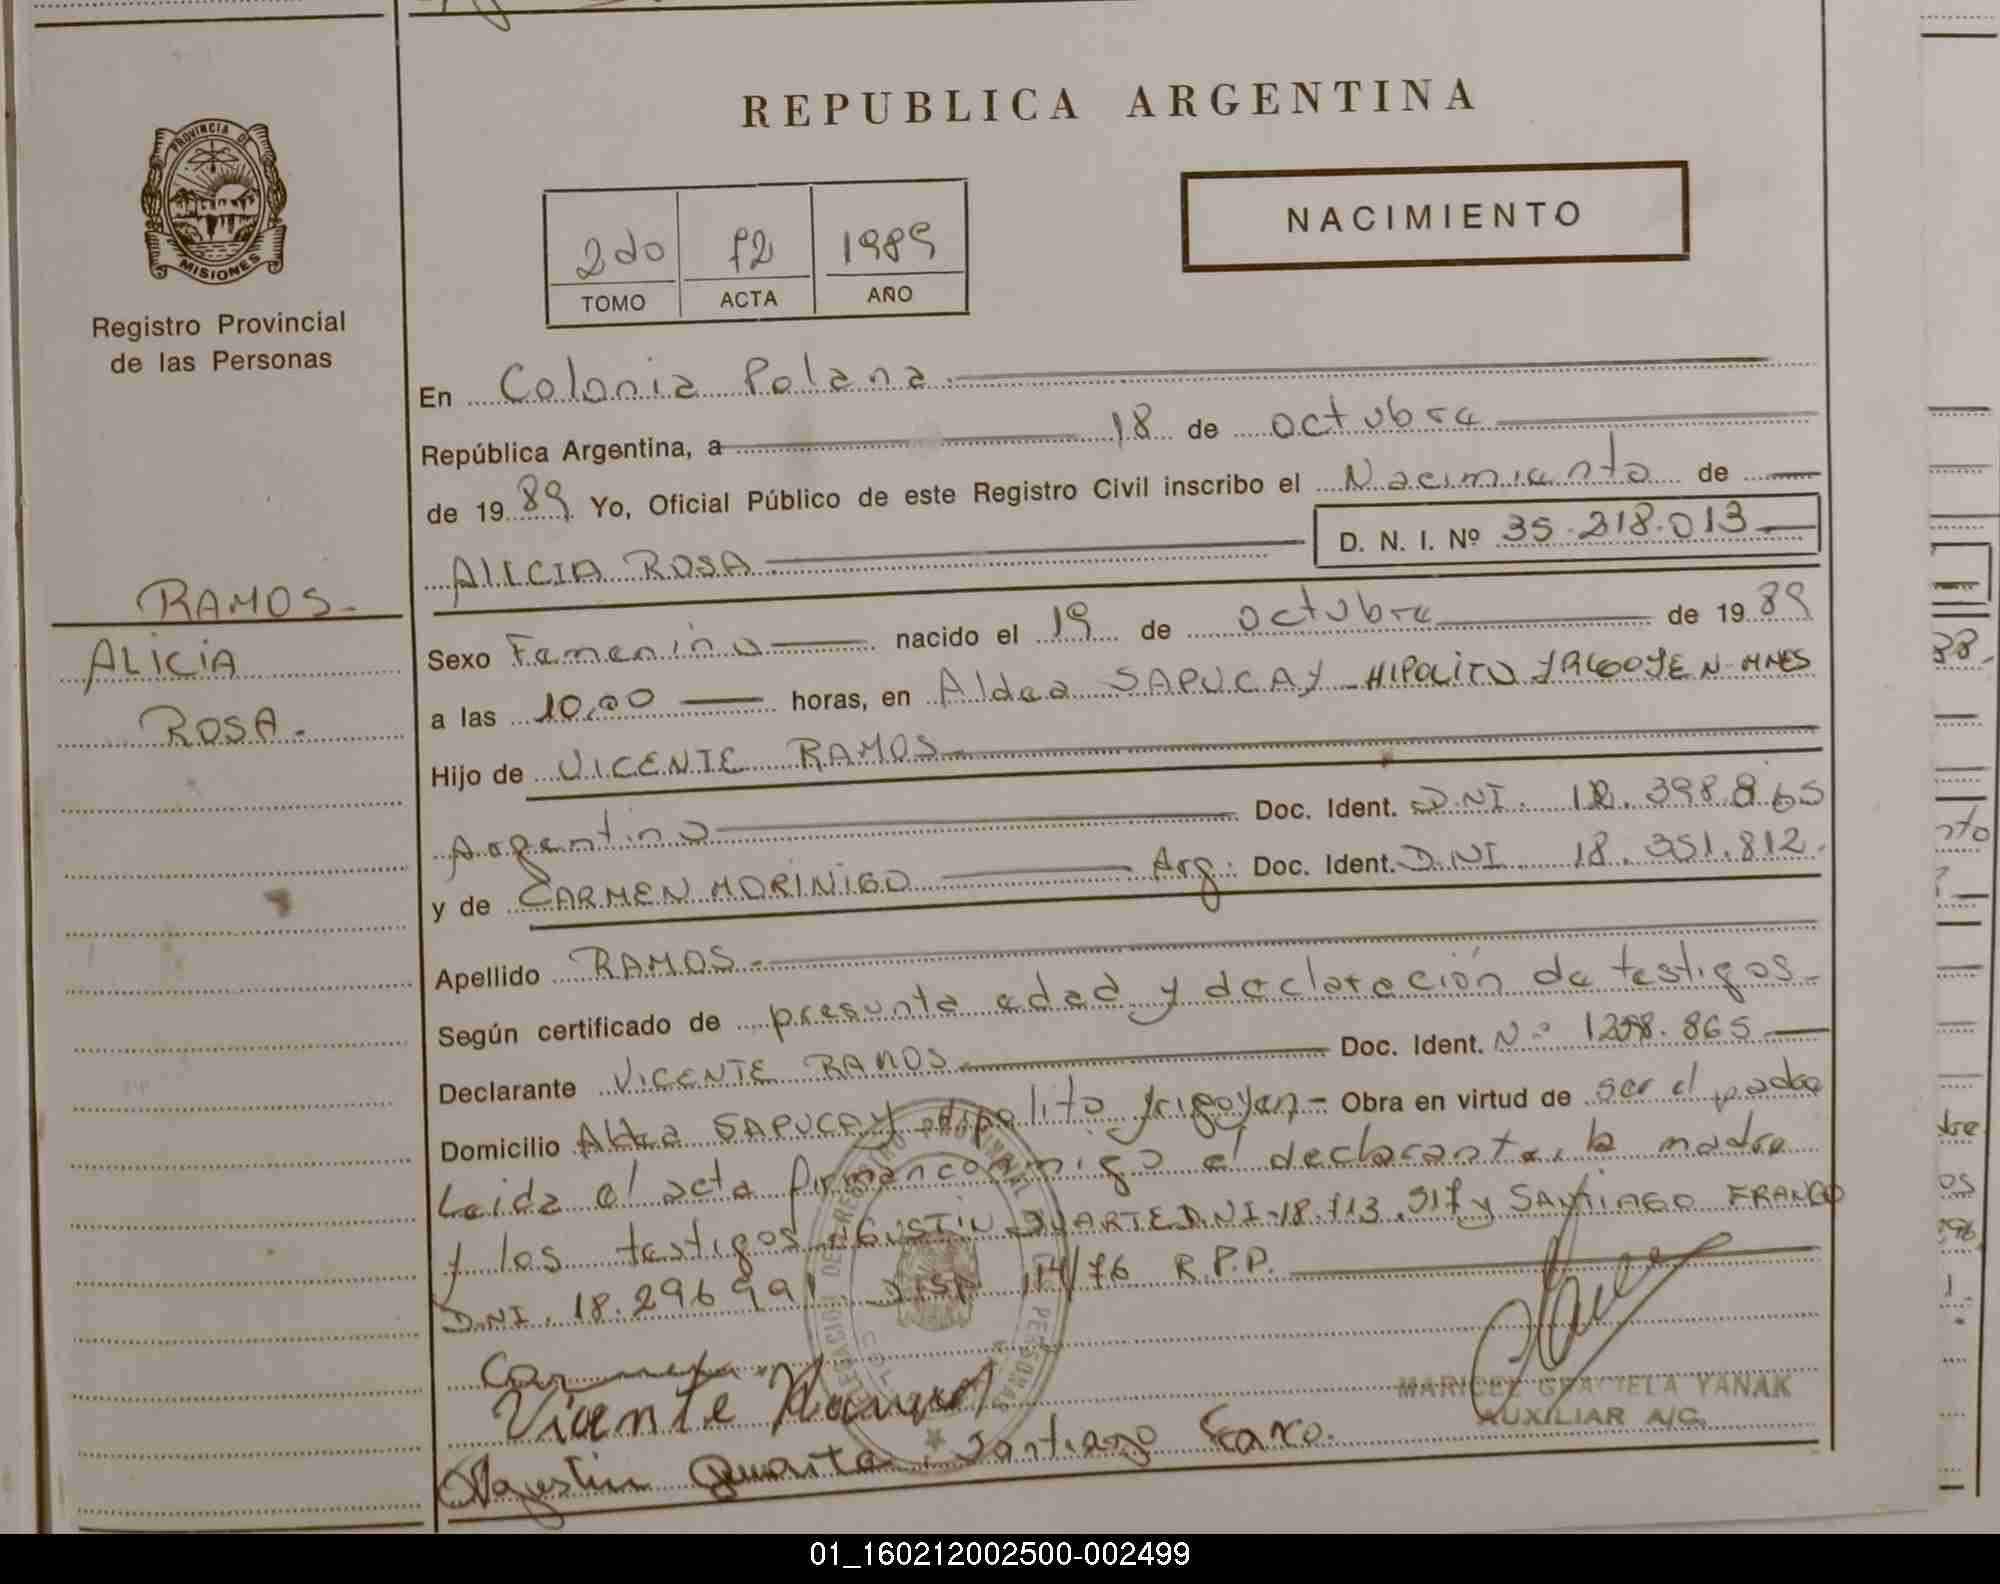 REPUBLICA ARGENTINA
PROVINCIA DE
MISIONES
Registro Provincial
de las Personas
NACIMIENTO
2do 72 1989
TOMO ACTA AÑO
En Colonia Polana
República Argentina, a 18 de octubre
de 1989 Yo, Oficial Público de este Registro Civil inscribo el Nacimiento de
ALICIA ROSA D. N. I. Nº 35.218.013
RAMOS
ALICIA
ROSA.
Sexo Femenino nacido el 19 de octubre de 1989
a las 10,00 horas, en Aldea SAPUCAY HIPOLITO YRIGOYEN - MNES
Hijo de VICENTE RAMOS
Argentino Doc. Ident. D.NI. 12.398.865
y de CARMEN MORINIGO Arg. Doc. Ident. D.NI 18.351.812.
Apellido RAMOS
Según certificado de presunta edad y declaración de testigos
Declarante VICENTE RAMOS Doc. Ident. N°
Domicilio Aldea SAPUCAY Hipolito Yrigoyen - Obra en virtud de ser el padre
Leida el acta firman conmigo el declarante, la madre
y los testigos AGUSTIN DUARTE D.NI. 18.713.517 y SANTIAGO FRANCO
D.NI. 18.296.991. DISP 114/76 R.P.P.
Vicente
Agustin Duarte Santiago
MARICEL GRACIELA YANAK
AUXILIAR A/C.
01_160212002500-002499